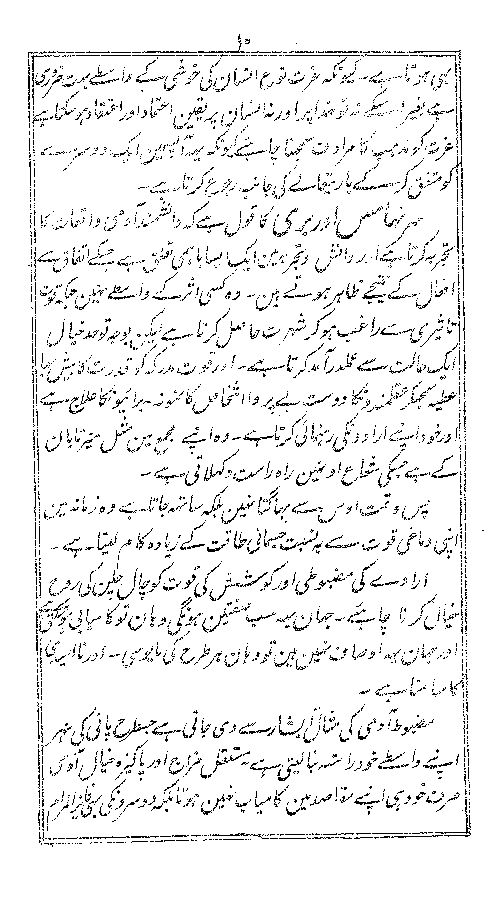 ۱۰
ہی ہوتا ہے۔ کیونکہ عزت نوع انسان کی خوشی کے واسطے بہت ضروری
ہے بغیر اسکے نہ تو خدا پر اور نہ انسان پر یقین اعتماد اور اعتقاد ہو سکتا ہے
عزت کو مذہب کا مرادف سمجھنا چاہیے کیونکہ یہہ آپسمین ایک دوسرے
کو متفق کر کے باریتعالے کی جانب رجوع کرتا ہے۔
سر ٹھامس اور بری کا قول ہے کہ دانشمند آدمی واقعات کا
تجربہ کرتا ہے اور دانش و تجربہ مین ایک ایسا باہمی تعلق ہے جسکے اتفاق سے
افعال کے نتیجے ظاہر ہوتے ہین۔ وہ کسی اثر کے واسطے نہین جبکہ قوت
تاثیری سے راغب ہو کر شہرت حاصل کرتا ہے لیکن بوجہ توحد خیال
ایک حالت سے عملدرآمد کرتا ہے۔ اور قوت مدرکہ کو قدرت کا بیش بہا
عطیہ سمجھکر عقلمندونکا دوست بے پروا اشخاص کا نمونہ۔ برائیونکا علاج ہے
اور خود اپنے ارادونکی رہنمائی کرتا ہے۔ وہ اپنے مجمع مین مثل مہر تابان
کے ہے جسکی شعاع اونہین راہ راست دکھلاتی ہے۔
پس وقت اوس سے بھاگتا نہین بلکہ ساتھ جاتا ہے وہ زمانہ مین
اپنی دماغی قوت سے بہ نسبت جسمانی طاقت کے زیادہ کام لیتا ہے۔
ارادے کی مضبوطی اور کوشش کی قوت کو چال چلن کی روح
خیال کرنا چاہئے۔ جہان یہہ سب صفتین ہونگی وہان تو کامیابی ہوگی
اور جہان یہہ اوصاف نہین ہین تو وہان ہر طرح کی مایوسی۔ اور نا امیدی
کا سامنا ہے۔
مضبوط آدمی کی مثال آبشار سے دی جاتی ہے جسطرح پانی کی نہر
اپنے واسطے خود راستہ بنا لیتی ہے۔ مستقل مزاج اور پاکیزہ خیال آدمی
صرف خود ہی اپنے مقاصد مین کامیاب نہین ہوتا بلکہ دوسرونکی بھی